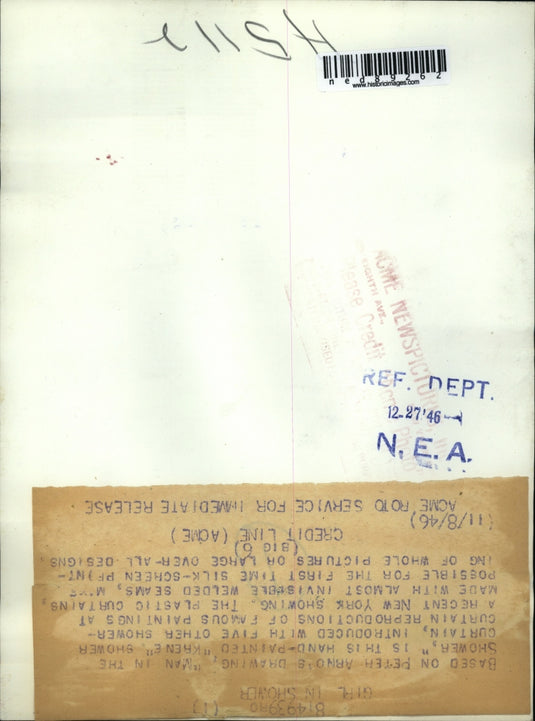 ned89262
www.historicimages.com
ACME NEWSPICTURES
EIGHTH AVE.,
Please Credit
REF. DEPT.
12-27'46
N. E. A.
814939RO (1)
GIRL IN SHOWER
BASED ON PETER ARNO'S DRAWING, "MAN, IN THE
SHOWER," IS THIS HAND-PAINTED "KRENE" SHOWER
CURTAIN, INTRODUCED WITH FIVE OTHER SHOWER-
CURTAIN REPRODUCTIONS OF FAMOUS PAINTINGS AT
A RECENT NEW YORK SHOWING. THE PLASTIC CURTAINS,
MADE WITH ALMOST INVISIBLE WELDED SEAMS,
POSSIBLE FOR THE FIRST TIME SILK-SCREEN PRINT-
ING OF WHOLE PICTURES OR LARGE OVER-ALL DESIGNS.
(BIG 6)
CREDIT LINE (ACME)
(11/8/46)
ACME ROTO SERVICE FOR IMMEDIATE RELEASE